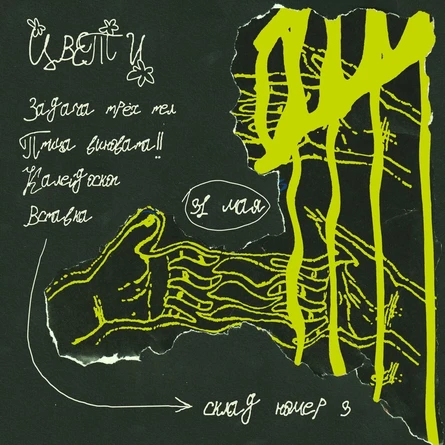 ЦВЕТИ
Задача трёх тел
Птица виновата!!
Калейдоскоп
Вставка
31 мая
склад номер 3